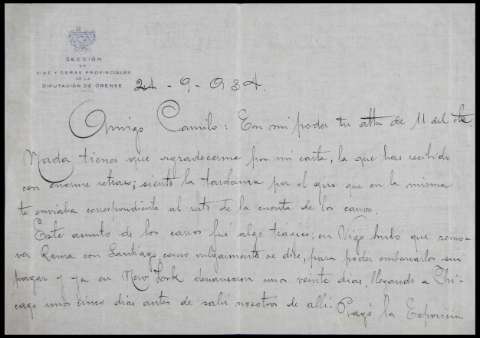 SECCIÓN
DE
VÍAS Y OBRAS PROVINCIALES
DE LA
DIPUTACIÓN DE ORENSE
24 - 9 - 934.
Amigo Camilo: En mi poder tu atta de 11 del
Nada tienes que agradecerme por mi carta, la que has recibido
con enorme retraso; siento la tardanza por el giro que en la misma
te enviaba correspondiente al resto de la cuenta de los carros.
Este asunto de los carros fué algo trágico; en Vigo hubo que remo-
ver Roma con Santiago como vulgarmente se dice, para poder embarcarlos sin
pagar y ya en New York durmieron unos veinte días llegando a Chi-
cago unos cinco días antes de salir nosotros de allí. Pagó la Exposición